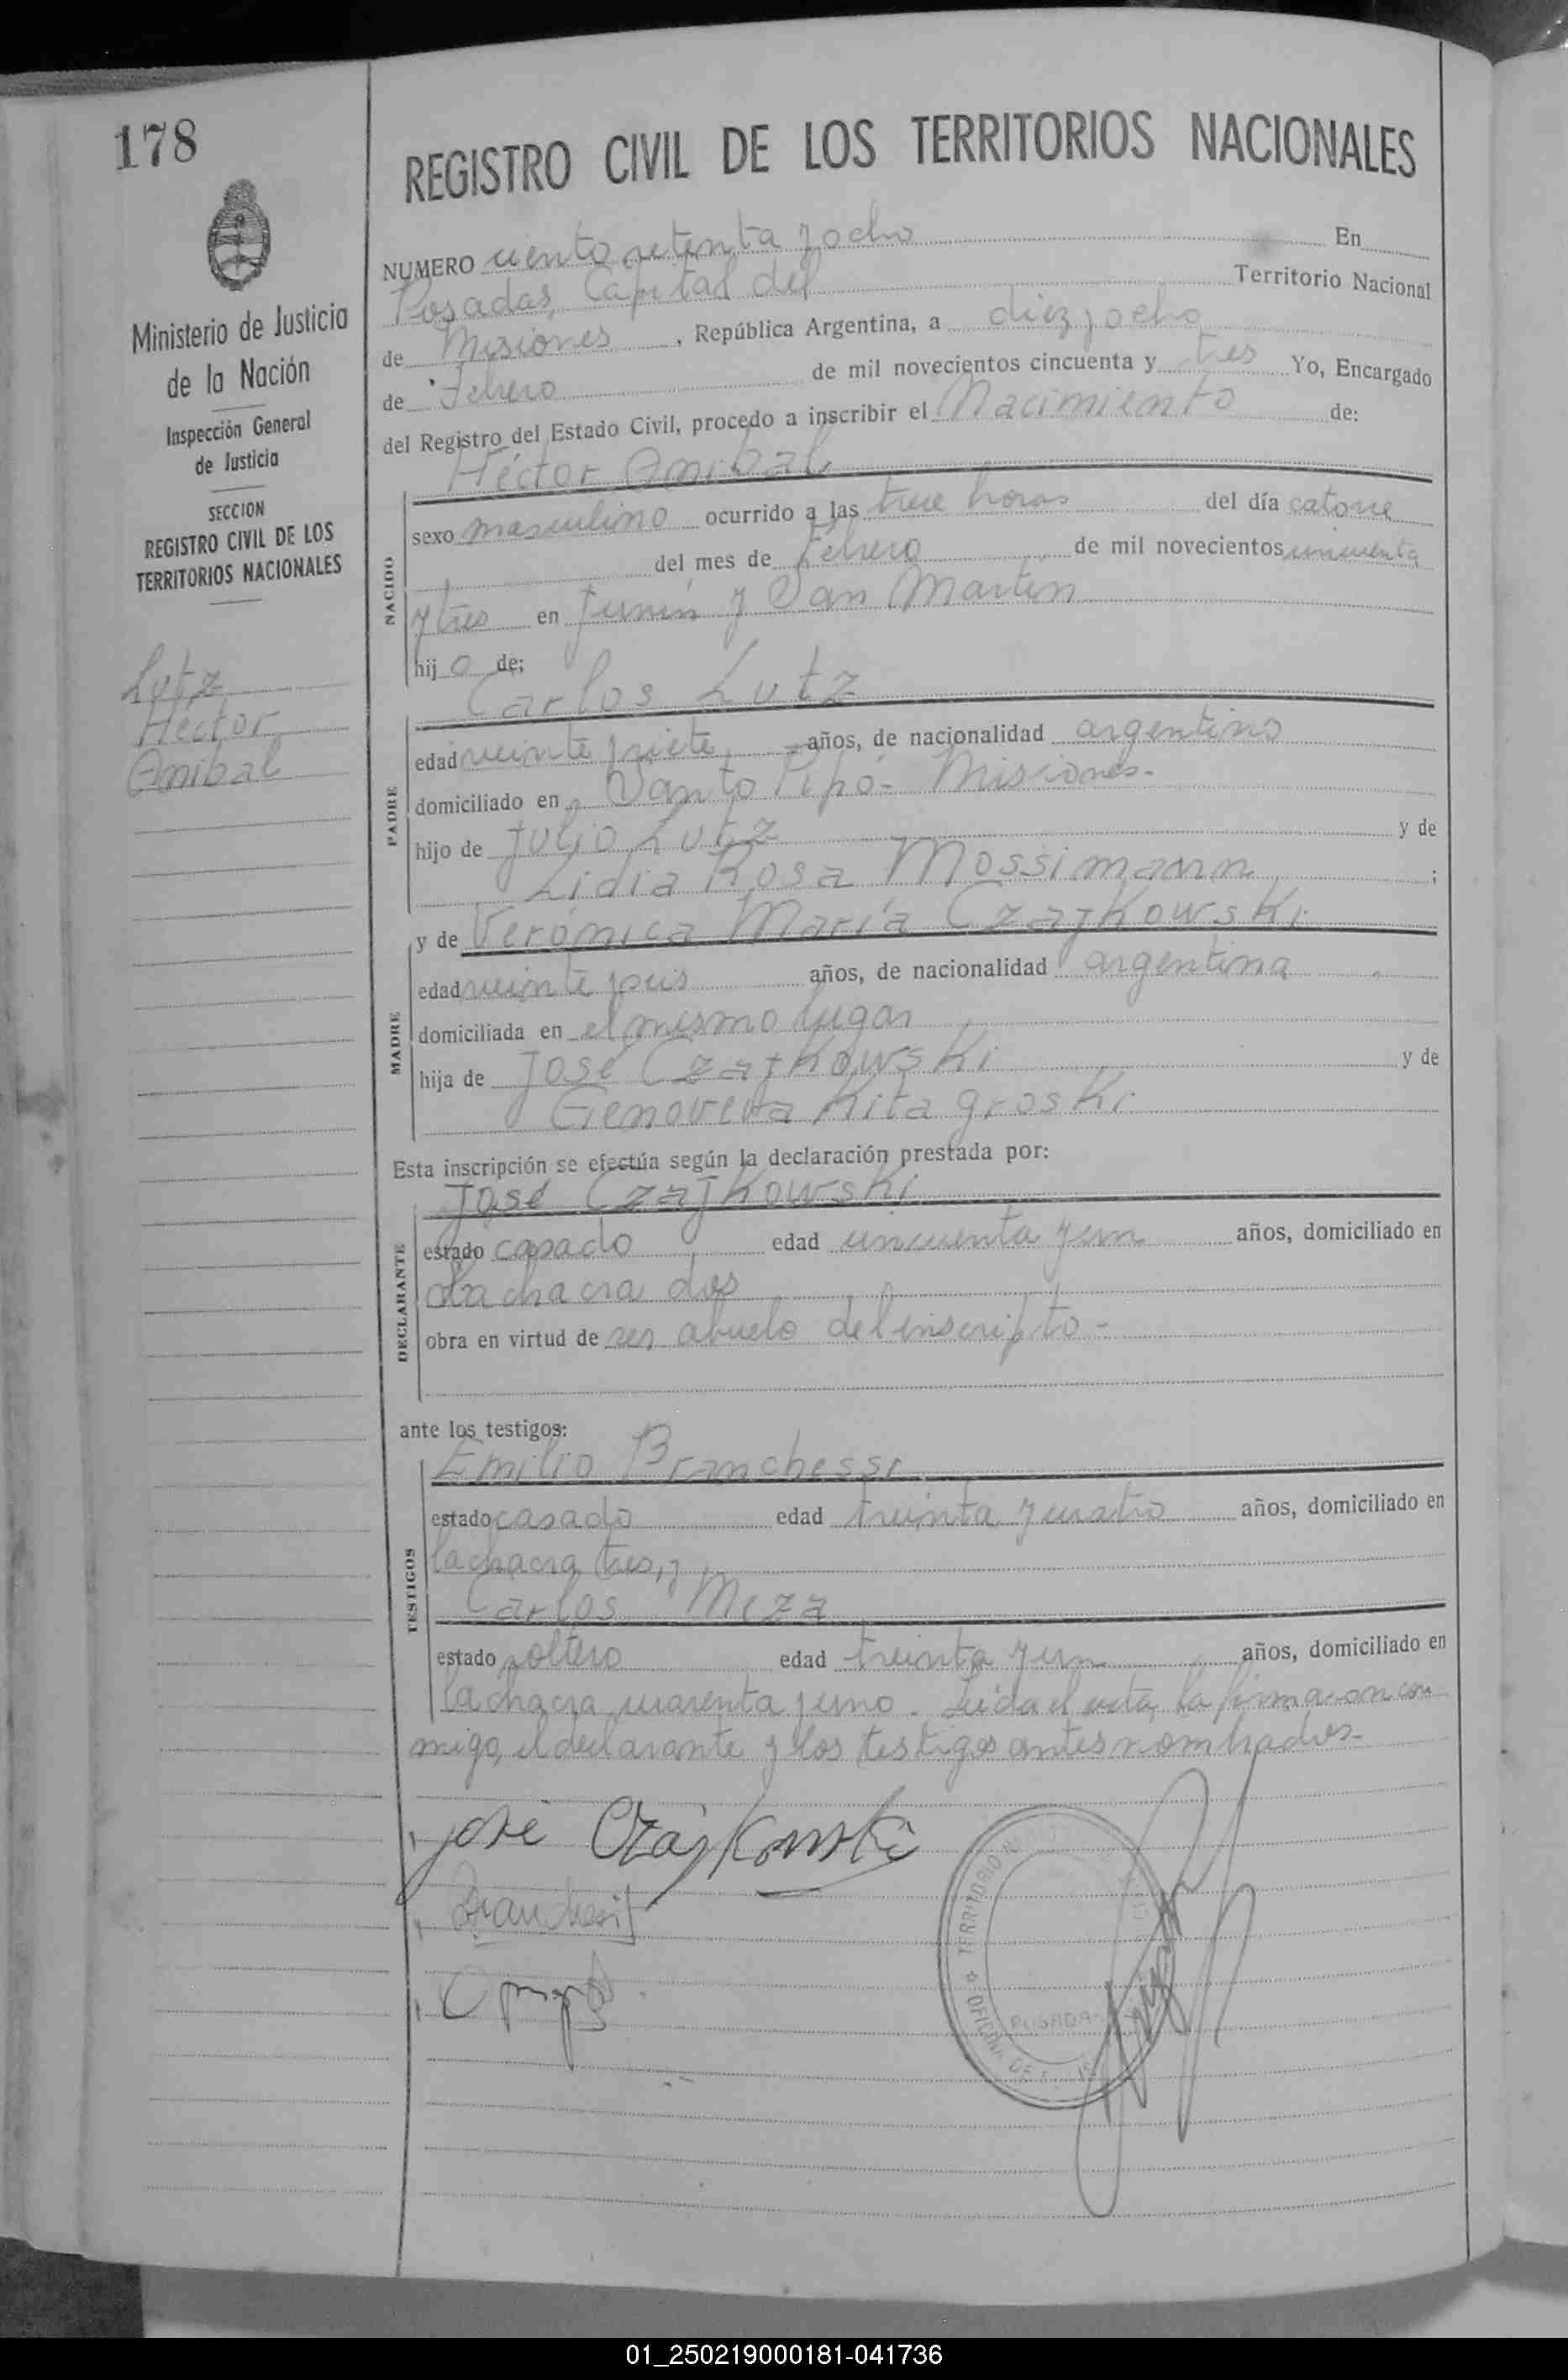 178
REGISTRO CIVIL DE LOS TERRITORIOS NACIONALES
Ministerio de Justicia
de la Nación
Inspección General
de Justicia
SECCION
REGISTRO CIVIL DE LOS
TERRITORIOS NACIONALES
Lutz
Héctor
Anibal
NUMERO ciento setenta y ocho En
Posadas, Capital del Territorio Nacional
de Misiones, República Argentina, a diez y ocho
de Febrero de mil novecientos cincuenta y tres Yo, Encargado
del Registro del Estado Civil, procedo a inscribir el Nacimiento de:
Héctor Anibal
NACIDO
sexo masculino ocurrido a las trece horas del día catorce
del mes de Febrero de mil novecientos cincuenta
y tres en Junín y San Martín
hijo de;
Carlos Lutz
PADRE
edad veinte y siete años, de nacionalidad argentino
domiciliado en Santo Pipó - Misiones-
hijo de Julio Lutz y de
Lidia Rosa Mossimann;
y de Verónica María Czajkowski
MADRE
edad veinte y seis años, de nacionalidad argentina
domiciliada en el mismo lugar
hija de José Czajkowski y de
Genoveva Kita groski
Esta inscripción se efectúa según la declaración prestada por:
José Czajkowski
DECLARANTE
estado casado edad cincuenta y un años, domiciliado en
la chacra dos
obra en virtud de ser abuelo del inscripto -
ante los testigos:
Emilio Branchessi
TESTIGOS
estado casado edad treinta y cuatro años, domiciliado en
la chacra tres, y
Carlos Meza
estado soltero edad treinta y un años, domiciliado en
la chacra cuarenta y uno. Leida el acta, la firmaron con
migo, el declarante y los testigos antes nombrados-
José Czajkowski
Branchesi
TERRITORIO
OFICINA DE
POSADAS
01_250219000181-041736